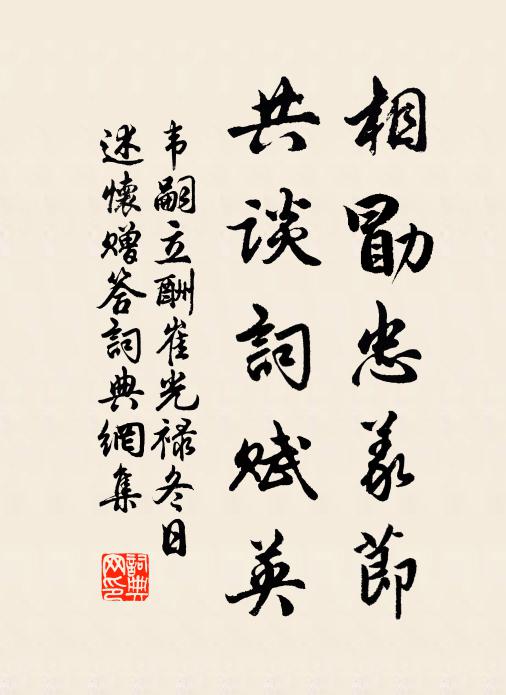 相勖忠义節
共谈詞赋英
韦嗣立酬崔光禄冬日
述懐赠答詞典網集
詞典
网印